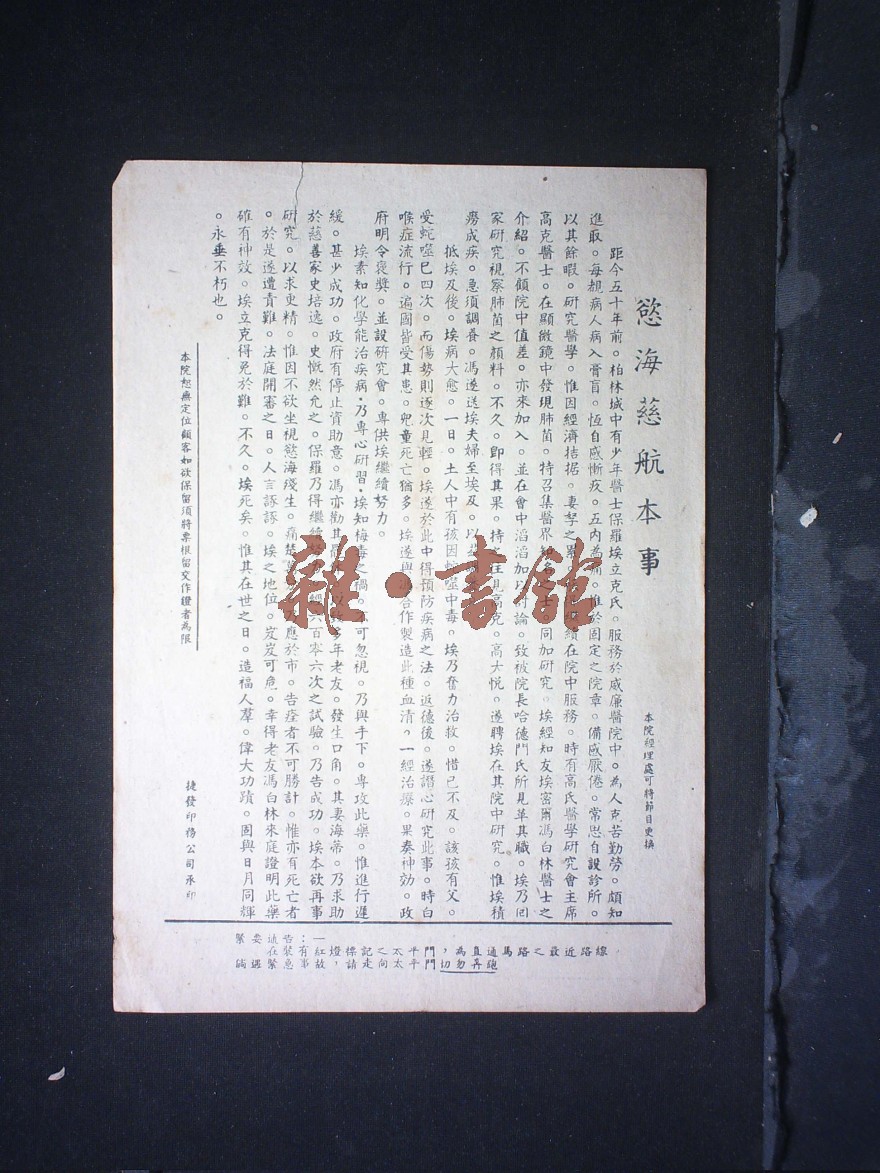 慾海慈航本事
本院經理處可將節目更換
距今五十年前。柏林城中有少年醫士保羅埃立克氏。服務於威廉醫院中。為人克苦勤勞。頗知
進取。每覩病人病入膏肓。恆自感慚疚。五內為。惟於固定之院章。備感厭倦。常思自設診所。
以其餘暇。研究醫學。惟因經濟拮据。妻孥之累。繼續在院中服務。時有高氏醫學研究會主席
高克醫士。在顯微鏡中發現肺菌。特召集醫界知名之士。同加研究。埃經知友埃密爾馮白林醫士之
介紹。不顧院中值差。亦來加入。並在會中滔滔加以討論。致被院長哈德門氏所見革其職。埃乃回
家研究視察肺菌之顏料。不久。即得其果。持之往見高克。高大悅。遂聘埃在其院中研究。惟埃積
癆成疾。急須調養。馮遂送埃夫婦至埃及。以
抵埃及後。埃病大愈。一日。土人中有孩因蛇噬中毒。埃乃奮力治救。惜已不及。該孩有父。
受蛇噬已四次。而傷勢則逐次見輕。埃遂於此中得預防疾病之法。返德後。遂潛心研究此事。時白
喉症流行。遍國皆受其患。兒童死亡猶多。埃遂與馮合作製造此種血清。一經治療。果奏神効。政
府明令褒獎。並設研究會。專供埃繼續努力。
埃素知化學能治疾病。乃專心研習。埃知梅毒之禍。不可忽視。乃與手下。專攻此藥。惟進行遲
緩。甚少成功。政府有停止資助意。馮亦勸其以致多年老友。發生口角。其妻海蒂。乃求助
於慈善家史培逸。史慨然允之。保羅乃得繼續努力。經六百零六次之試驗。乃告成功。埃本欲再事
研究。以求更精。惟因不欲坐視慾海殘生。痛楚應於市。告痊者不可勝計。惟亦有死亡者
。於是遂遭責難。法庭開審之日。人言諑諑。埃之地位。岌岌可危。幸得老友馮白林來庭證明此藥
確有神效。埃立克得免於難。不久。埃死矣。惟其在世之日。造福人羣。偉大功蹟。固與日月同輝
。永垂不朽也。
本院恕無定位顧客如欲保留須將票根留交作證者為限
捷發印務公司承印
緊要通告：一在裝有紅燈，標記之太平門，為直通馬路之最近路線
倘遇緊急事故請走向太平門切勿奔跑
雜·書館